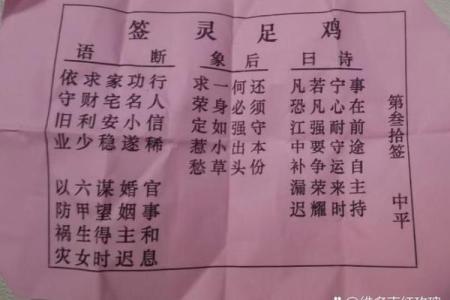 鸡足灵签
第叁拾签 中平
诗曰
事在前途自主持
宁心耐守运来时
若凡强要争荣耀
凡恐江中补漏迟
后象
还须守本份
何必强出头
一身如小草
求荣定惹愁
断语
行人信稀
功名小遂
家宅安稳
求财利少
依守旧业
官事和息
婚姻主迟
谋望得时
六甲生女
以防祸灾